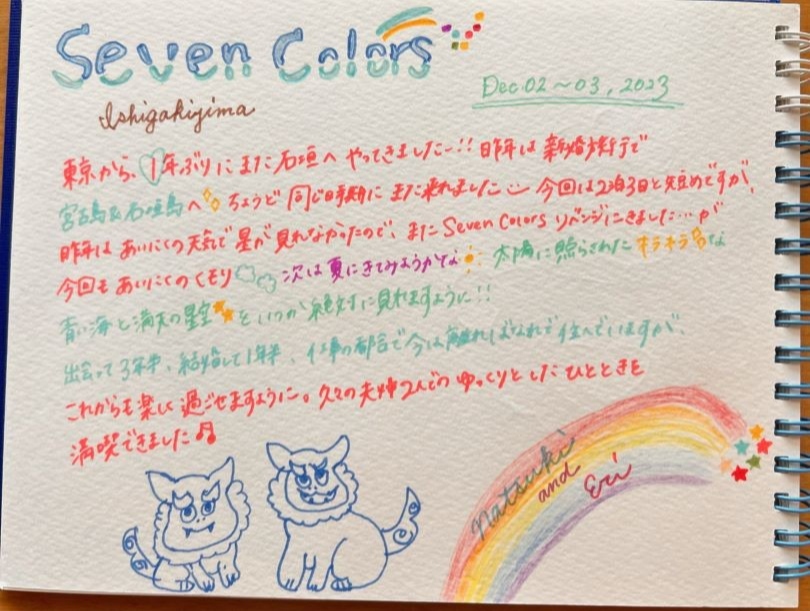 Seven Colors
Ishigakijima
Dec. 02~03, 2023
東京から、1年ぶりにまた石垣へ やってきましたー!! 昨年は 新婚旅行で
宮古島&石垣島へ ちょうど 同じ時期に また来れました 今回は2泊3日と短めですが、
昨年は あいにくの天気で 星が 見れなかったので、また Seven Colors リベンジにきました…が
今回も あいにくのくもり 次は 夏にきてみようかな 太陽に照らされた キラキラな
青い海と満天の星空 を いつか絶対に見れますように!!
出会って3年半、結婚して1年半、仕事の都合で今は離ればなれで住んでいますが、
これからも楽しく過ごせますように。久々の夫婦2人での ゆっくりとした ひとときを
満喫できました♫
Natsuki
and
Eri